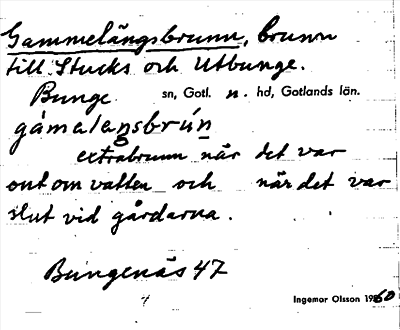 Gammelängsbrunn, brunn
till Stucks och Utbunge.
Bunge sn, Gotl. n. hd, Gotlands län.
gámalaŋsbrún
extrabrunn när det var
ont om vatten och när det var
slut vid gårdarna.
Bungenäs 47
Ingemar Olsson 1960